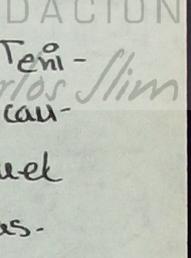 DACIÓN
Teni-
rlos Slim
cau-
uel
us-